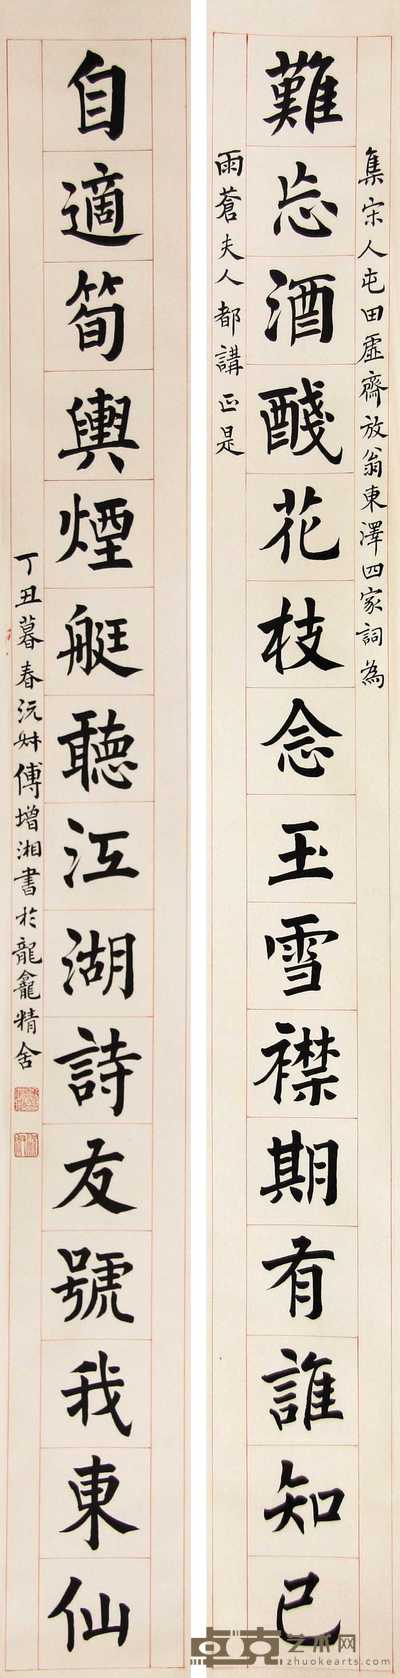 集宋人屯田虛齋放翁東澤四家詞為
難忘酒醆花枝念玉雪襟期有誰知己
雨蒼夫人都講正是
自適筍輿煙艇聽江湖詩友號我東仙
丁丑暮春沅叔傅增湘書於龍龕精舍
卓克艺术网
zhuokearts.com